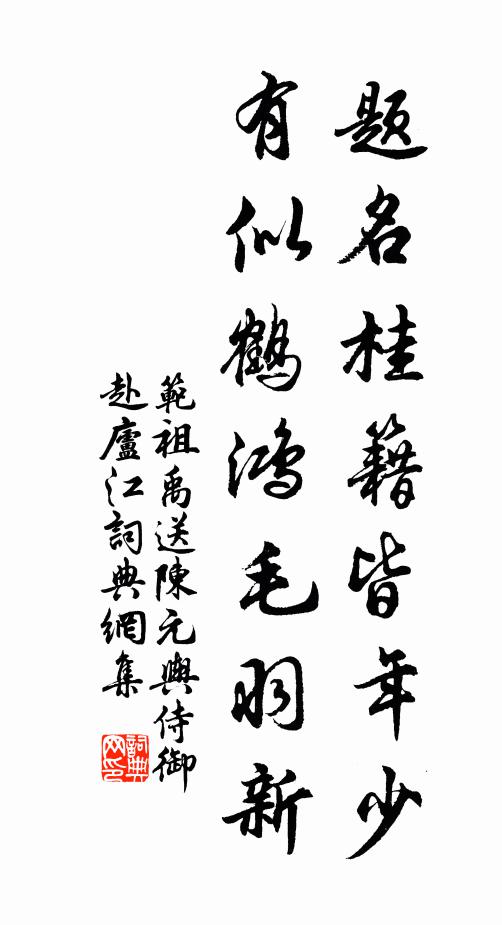 題名桂籍皆年少
有似鶴鴻毛羽新
範祖禹送陳元輿侍御
赴廬江詞典網集
詞典
网印